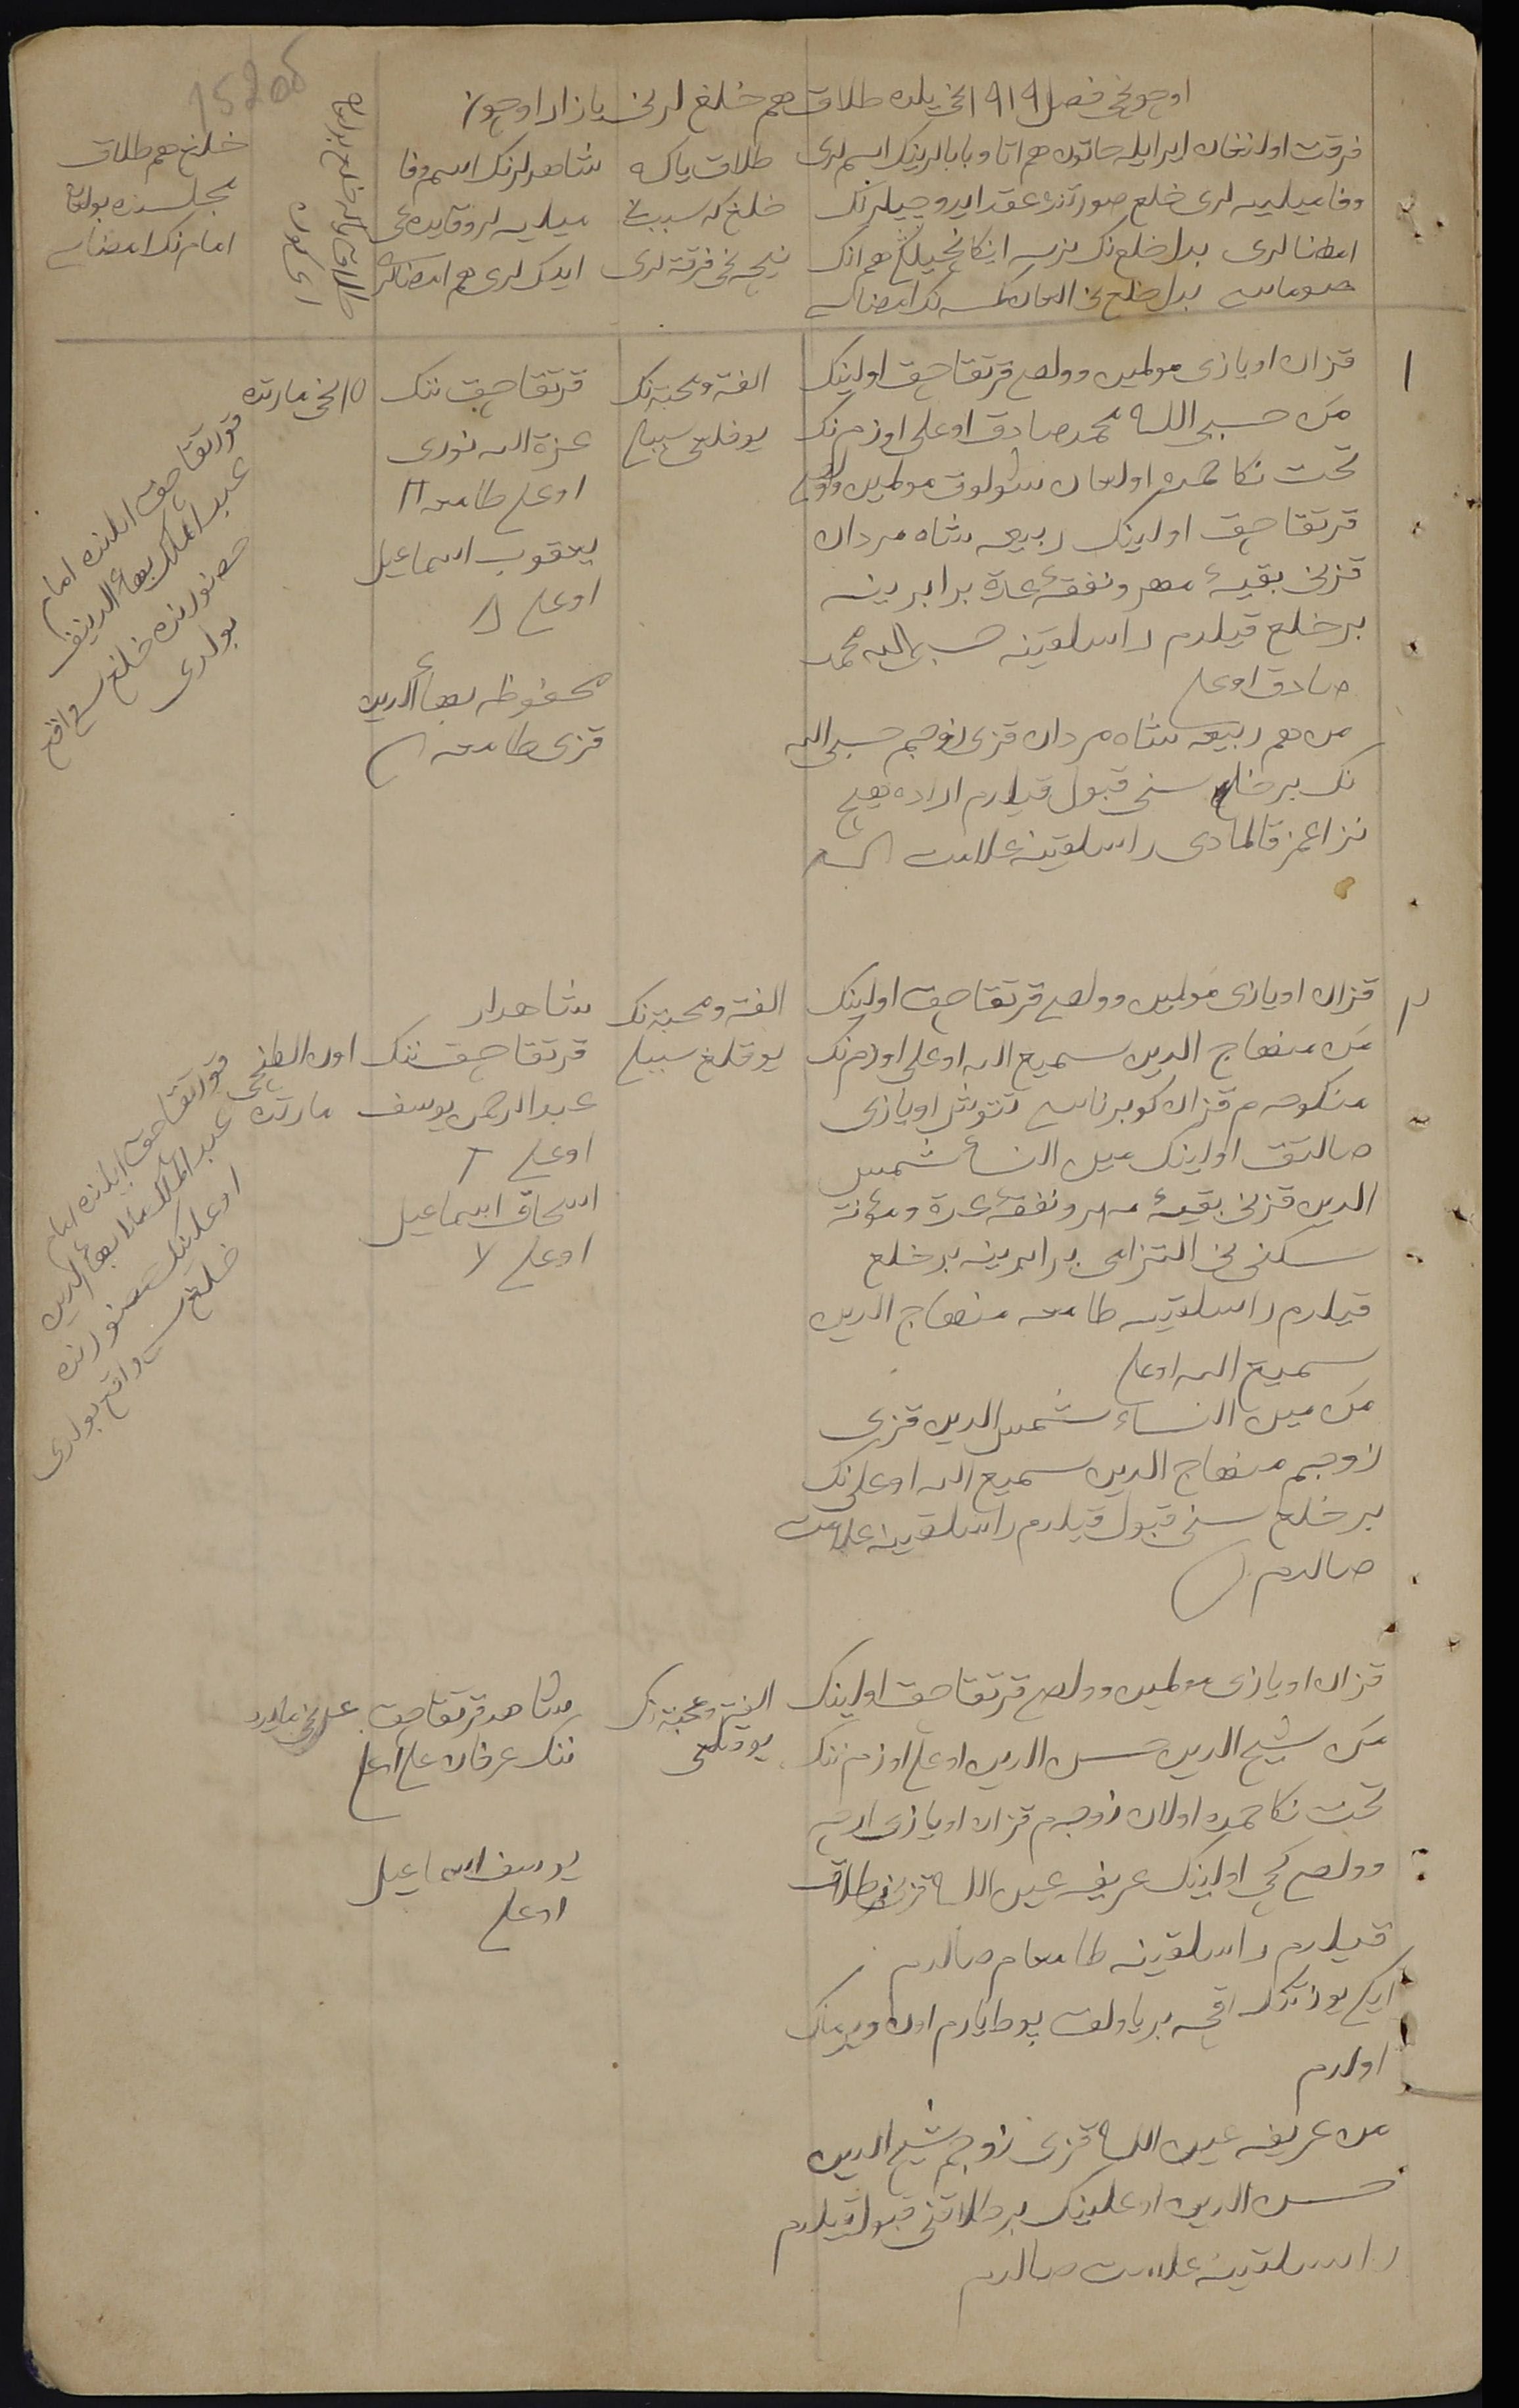 اوچونچی فصل ۱۹۱۹ نچی یلده طلاق هم خلع لرنی یازار اوچون
فرقت اولنغان ایرایله خاتون هم اتا و بابالرینک اسم لری
وفامیلیه لری خلع صورتنده عقد ایدوچیلرنک
امضالری بدل خلع نک نرسه ایکانچیلکی هم انک
بدل خلع نی امضاسی
طلاق یاکه
خلع که سببی
نیچه نچی فرقه لری
شاهدلرنک اسم وفا
میلیه لر وقایده غی
ایدکلری هم امضالری
خلع هم طلاق
مجلسنده بولغان
امام نک امضاسی
۱
قزان اویازی مولمین وولصی قرتقاچق اولینک
من حسبی الله محمدصادق اوغلی اوزم نک
تحت نکاحمده اولغان شولوق مولمین وولصی
قرتقاچق اولینک ربیعه شاه مردان
قزنی بقیهٔ مهر ونفقهٔ عدة برابرینه
بر خلع قیلدم راسلقینه حسبی الله محمد
صادق اوغلی
من هم ربیعه شاه مردان قزی زوجم حسبی الله
نک بر خلع سنی قبول قیلدم اراده
نزاعمز قالمادی راسلقینه علامت
الفة ومحبة نک
یوقلغی سببلی
قرتقاچق ننک
عزة الله نوری
اوغلی طامغا
یعقوب اسماعیل
اوغلی
محفوظه بهاءالدین
قزی طامغه
۱۵ نچی مارتده
قورتقاچق اولنده امام
عبدالملک بهاءالدینف
حضورنده خلع سی واقع
بولدی
۲
قزان اویازی مولمین وولصی قرتقاچق اولینک
من منهاج الدین سمیع الله اوغلی اوزم نک
منکوحه م قزان کوبرناسی تتوش اویازی
صالتق اولینک مین النساء شمس
الدین قزنی بقیهٔ مهر ونفقهٔ عدة ومؤنة
سکنی نی التزامی برابرینه بر خلع
قیلدم راسلقینه طامغه منهاج الدین
سمیع الله اوغلی
من مین النساء شمس الدین قزی
زوجم منهاج الدین سمیع الله اوغلی نک
بر خلع سنی قبول قیلدم راسلقینه علامت
صالدم
الفة ومحبة نک
یوقلغی سببلی
شاهدلر
قرتقاچق ننک
عبدالرحمن یوسف
اوغلی
اسحاق اسماعیل
اوغلی
اون التنچی
مارتده
قورتقاچق اولنده امام
عبدالملک ملا بهاءالدین
اوغلینک حضورنده
خلع سی واقع بولدی
قزان اویازی مولمین وولصی قرتقاچق اولینک
من شیخ الدین حسن الدین اوغلی اوزم ننک
تحت نکاحمده اولان زوجه م قزان اویازی
وولصی اولینک عریفه عین الله قزنی بر طلاق
قیلدم راسلقینه طامغام صالدم
ایکی یوز تنکه اقچه بر یاولق
اولدم
من عریفه عین الله قزی زوجم شیخ الدین
حسن الدین اوغلینک بر طلاقنی قبول قیلدم
راسلقینه علامت صالدم
الفة ومحبة نک
یوقلغی
شاهد قرتقاچق
ننک عرفان علی اوغلی
یوسف اسماعیل
اوغلی